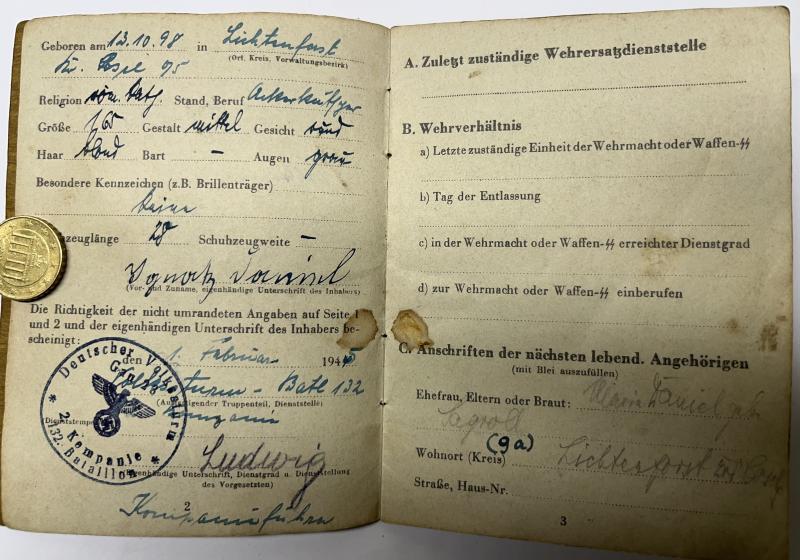 Geboren am 13.10.98 in Lichtenforst
(Ort, Kreis, Verwaltungsbezirk)
Religion röm. kath. Stand, Beruf
Größe 1,65 Gestalt mittel Gesicht rund
Haar blond Bart – Augen grau
Besondere Kennzeichen (z.B. Brillenträger)
keine
zeuglänge 28 Schuhzeugweite –
Ignatz Daniel
(Vor- und Zuname, eigenhändige Unterschrift des Inhabers)
Die Richtigkeit der nicht umrandeten Angaben auf Seite 1
und 2 und der eigenhändigen Unterschrift des Inhabers be-
scheinigt:
den 1. Februar 1945
Volkssturm - Batl 132
(Ausfertigender Truppenteil, Dienststelle)
Kompanie
Dienststempel
Deutscher Volkssturm
2. Kompanie
132. Bataillon
Ludwig
(Eigenhändige Unterschrift, Dienstgrad u. Dienststellung
des Vorgesetzten)
2
Kompanieführer
A. Zuletzt zuständige Wehrersatzdienststelle
B. Wehrverhältnis
a) Letzte zuständige Einheit der Wehrmacht oder Waffen-SS
b) Tag der Entlassung
c) in der Wehrmacht oder Waffen-SS erreichter Dienstgrad
d) zur Wehrmacht oder Waffen-SS einberufen
C. Anschriften der nächsten lebend. Angehörigen
(mit Blei auszufüllen)
Ehefrau, Eltern oder Braut: Maria Daniel geb.
(9a)
Wohnort (Kreis) Lichtenforst
Straße, Haus-Nr.
3